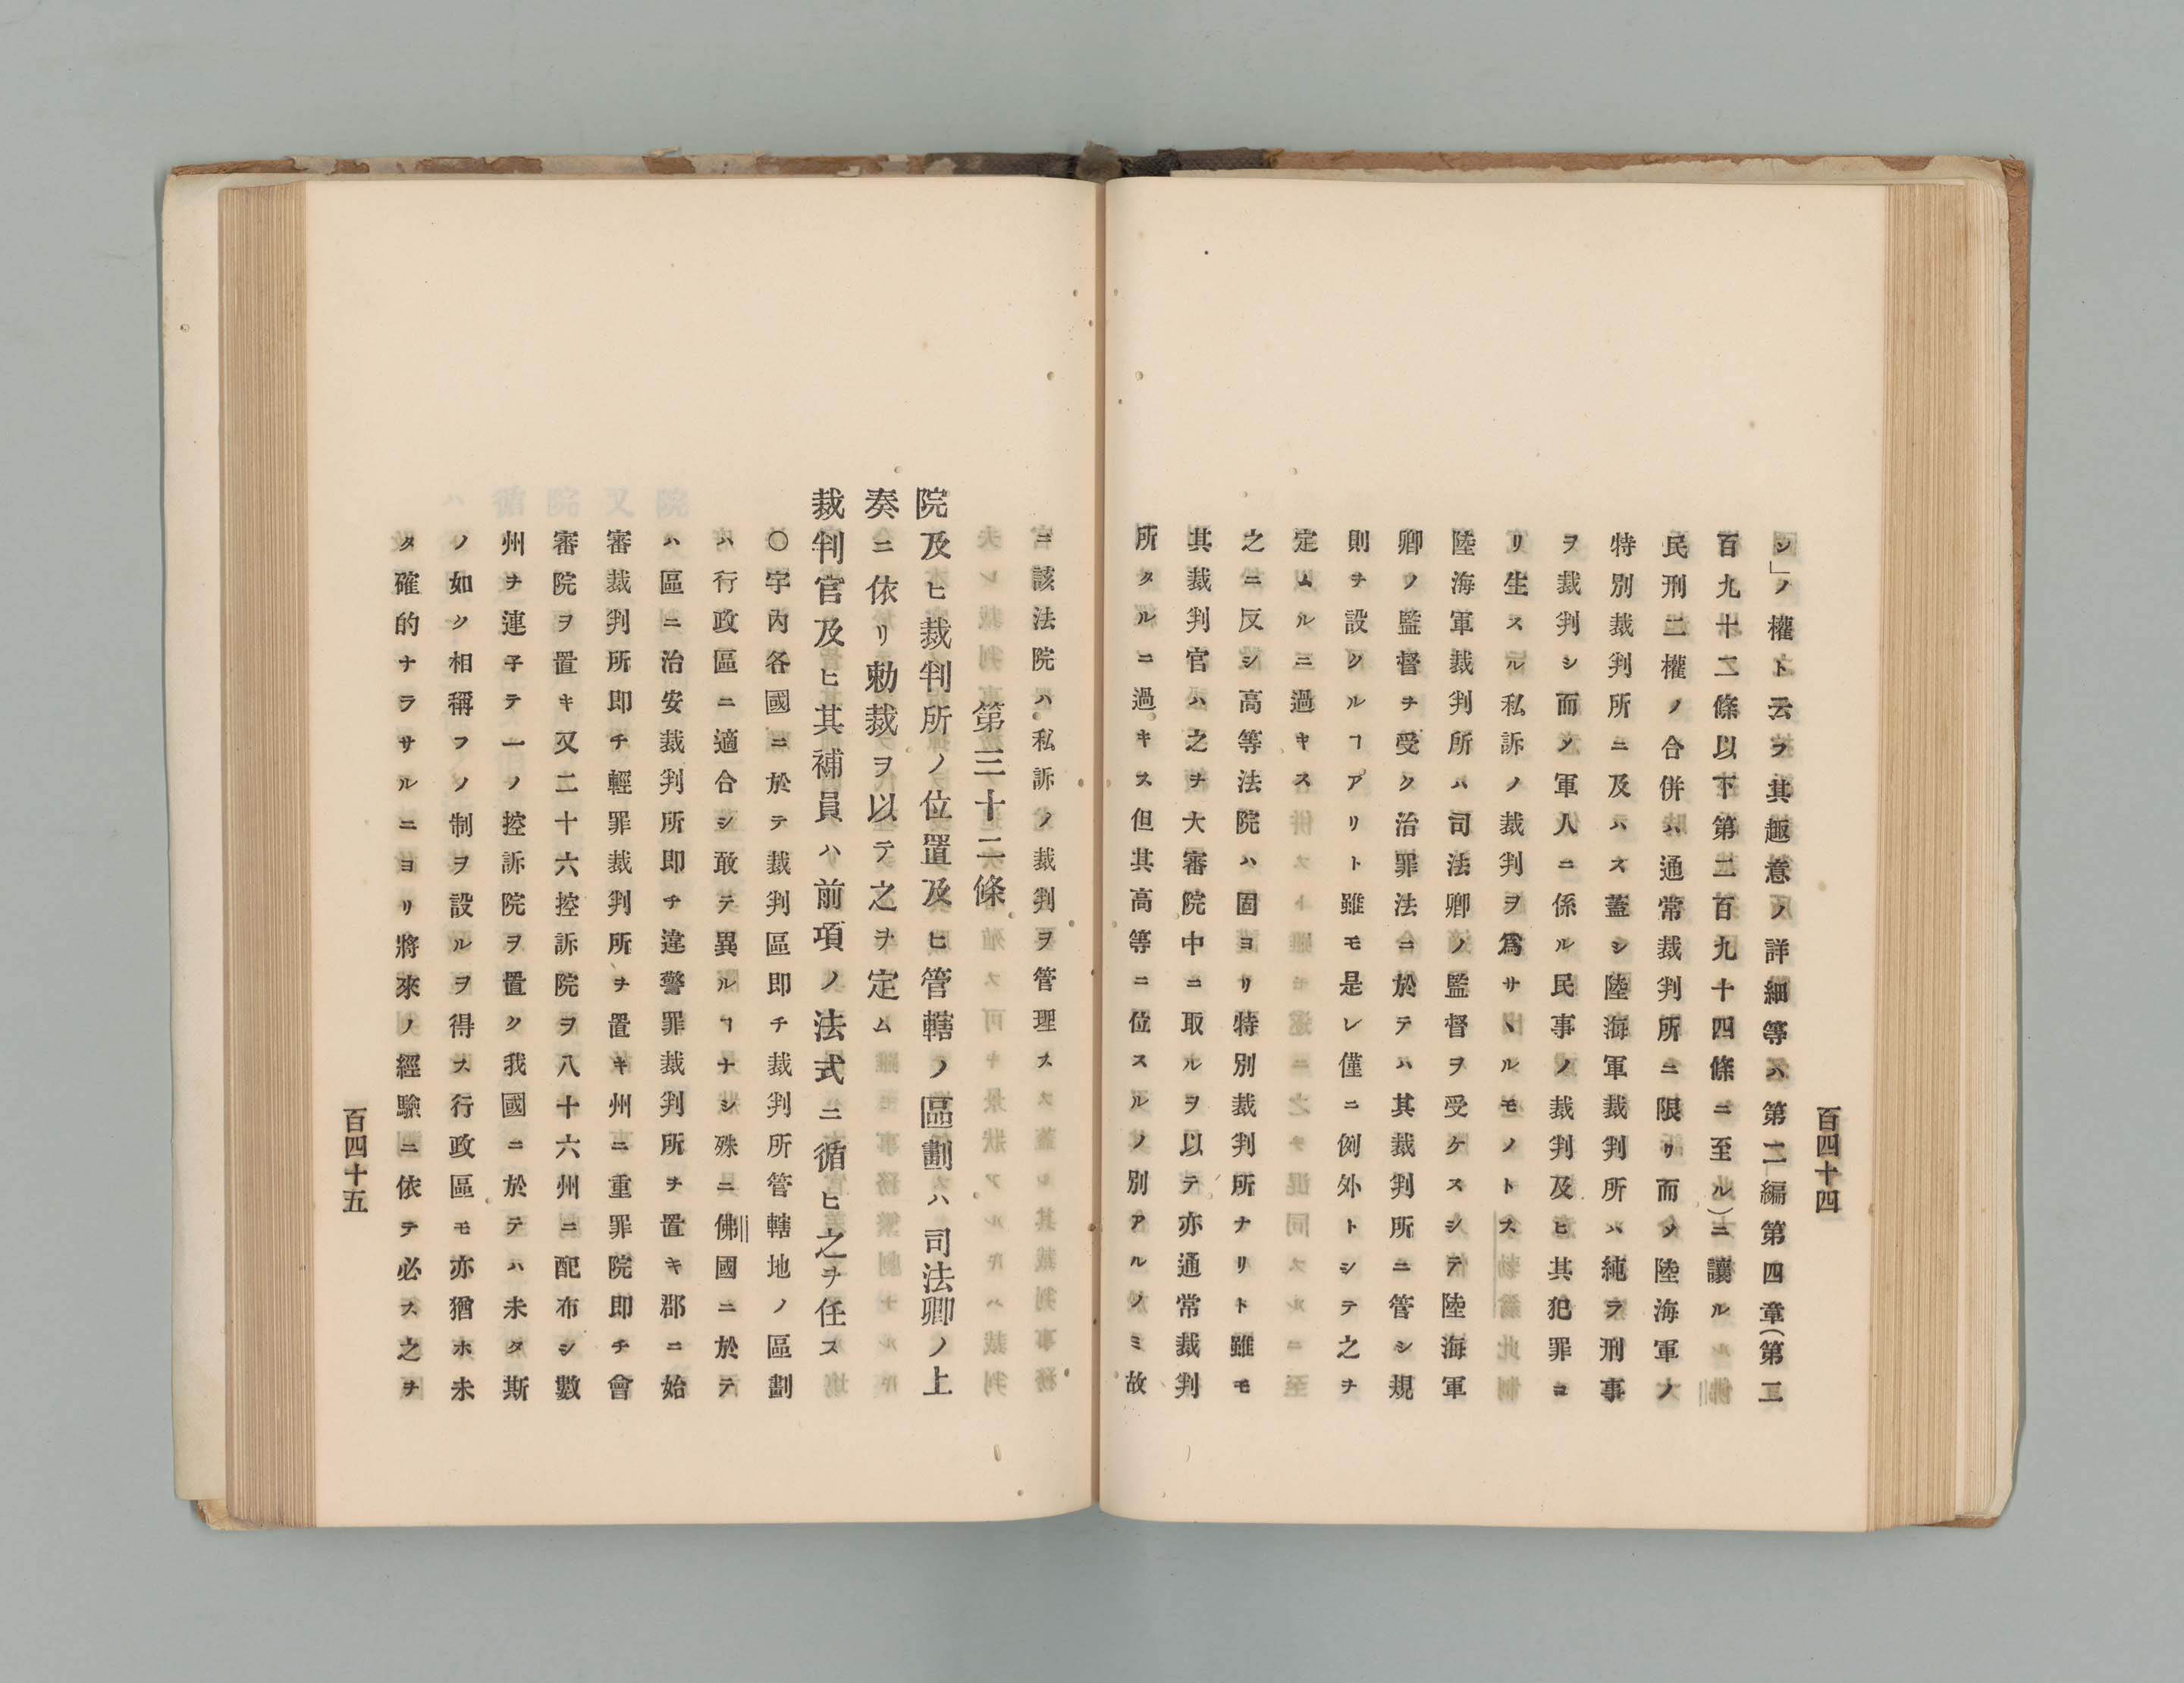 百四十四
シ」ノ權ト云フ其趣意ノ詳細等ハ第二編第四章(第二
百九十二條以下第二百九十四條ニ至ル)ニ讓ル
民刑二權ノ合併ハ通常裁判所ニ限リ而メ陸海軍ノ
特別裁判所ニ及ハス蓋シ陸海軍裁判所ハ純ラ刑事
ヲ裁判シ而メ軍人ニ係ル民事ノ裁判及ヒ其犯罪ヨ
リ生スル私訴ノ裁判ヲ爲サヽルモノトス
陸海軍裁判所ハ司法卿ノ監督ヲ受ケスシテ陸海軍
卿ノ監督ヲ受ク治罪法ニ於テハ其裁判所ニ管シ規
則ヲ設クルヿアリト雖モ是レ僅ニ例外トシテ之ヲ
定ムル三過キス
之ニ反シ高等法院ハ固ヨリ特別裁判所ナリト雖モ
其裁判官ハ之ヲ大審院中ニ取ルヲ以テ亦通常裁判
所タルニ過キス但其高等ニ位スルノ別アルノミ故
ニ該法院ハ私訴ノ裁判ヲ管理ス
第三十二條
院及ヒ裁判所ノ位置及ヒ管轄ノ區劃ハ司法卿ノ上
奏ニ依リ勅裁ヲ以テ之ヲ定ム
裁判官及ヒ其補員ハ前項ノ法式ニ循ヒ之ヲ任ス
〇宇內各國ニ於テ裁判區即チ裁判所管轄地ノ區劃
ハ行政區ニ適合シ敢テ異ルヿナシ殊ニ佛國ニ於テ
ハ區ニ治安裁判所即チ違警罪裁判所ヲ置キ郡ニ始
審裁判所即チ輕罪裁判所ヲ置キ州ニ重罪院即チ會
審院ヲ置キ又二十六控訴院ヲ八十六州ニ配布シ數
州ヲ連子テ一ノ控訴院ヲ置ク我國ニ於テハ未タ斯
ノ如ク相稱フノ制ヲ設ルヲ得ス行政區モ亦猶ホ未
タ確的ナラサルニヨリ將來ノ經驗ニ依テ必ス之ヲ
百四十五